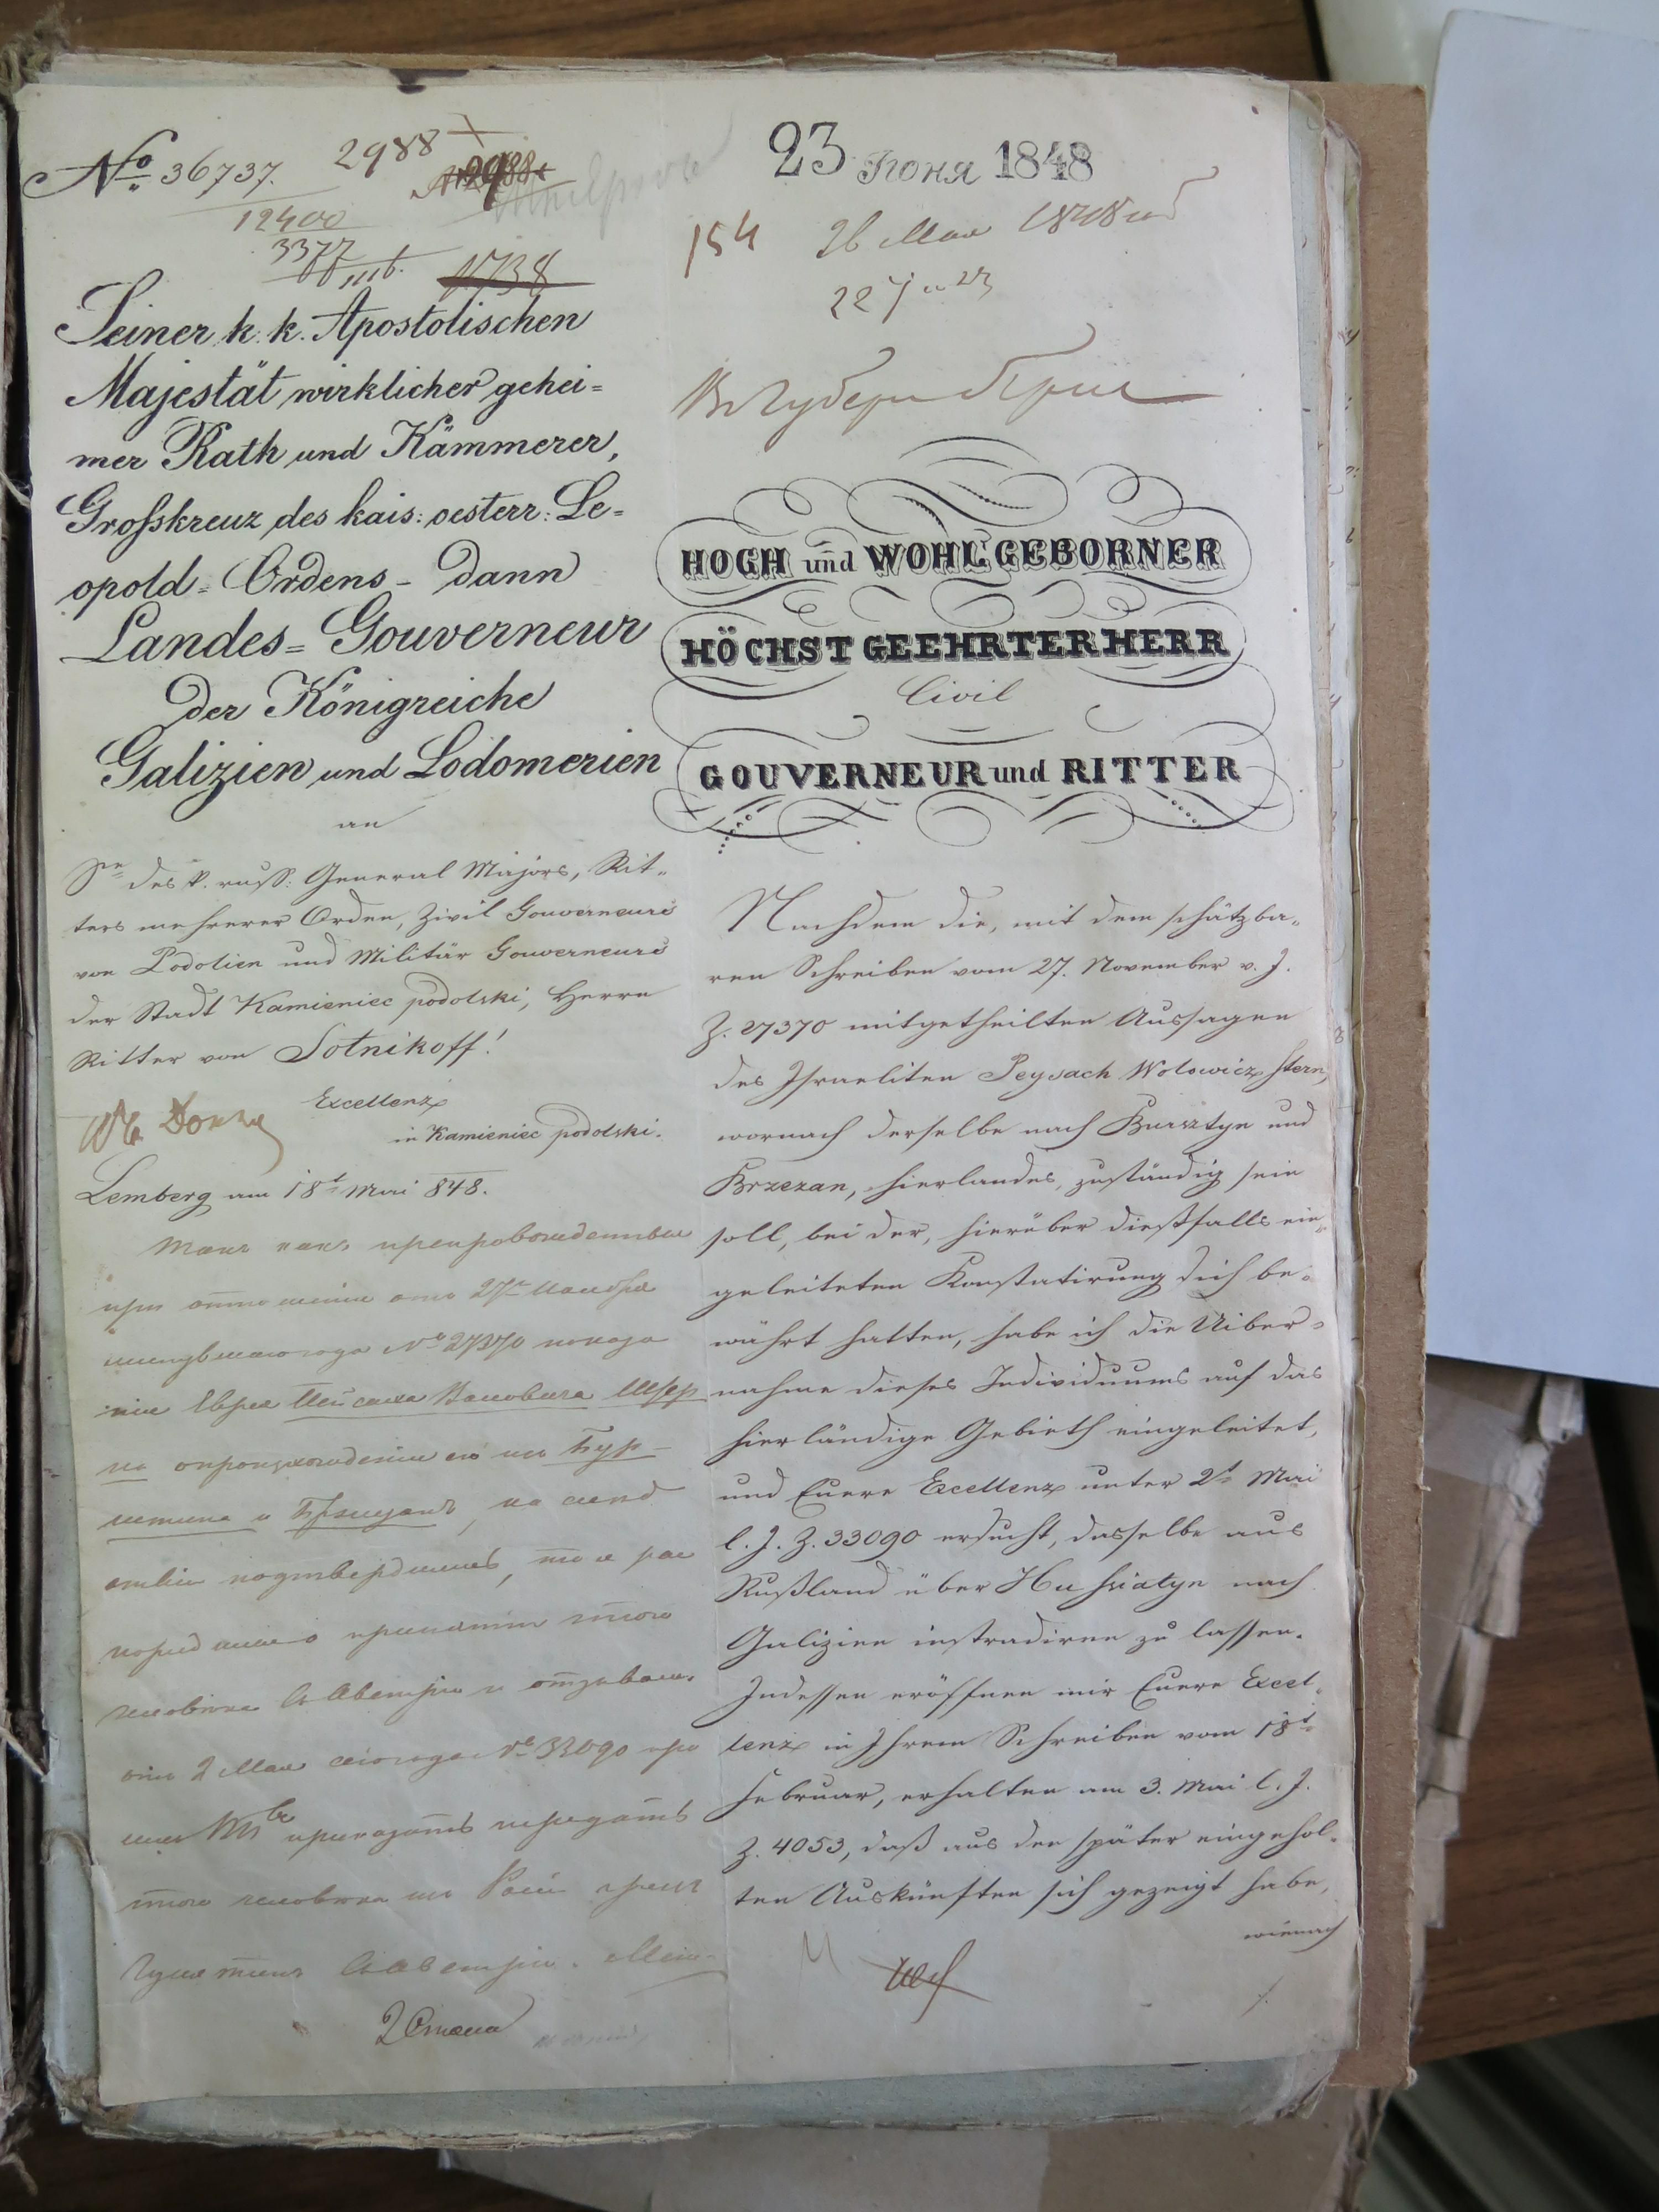 No. 36737.
2988
12400
3377
1738
23 Іюня 1848
154 26 Мая 1848
Seiner k. k. Apostolischen
Majestät wirklicher gehei=
mer Rath und Kämmerer,
Grosskreuz des kais: oesterr: Le=
opold=Ordens - dann
Landes=Gouverneur
der Königreiche
Galizien und Lodomerien
an
Sr des k. russ: General Majors, Rit„
ters mehrerer Orden, Zivil Gouverneurs
von Podolien und Militär Gouverneurs
der Stadt Kamieniec podolski, Herrn
Ritter von Sotnikoff!
Excellenz
in Kamieniec podolski.
Lemberg am 18t Mai 848.
Такъ какъ препровожденныя
при отношеніи отъ 27го Ноября
минувшаго года № 27370 показа
нія Еврея Пейсаха Воловича Штер
на о происхожденіи его изъ Бур-
штына и Бржезанъ, на слѣд
ствіи подтвердились, то я рас
порядился о принятіи этого
человѣка въ Австрію и отзывомъ
отъ 2 Мая сего года № 33090 про
силъ приказать передать
этого человѣка изъ Россіи чрезъ
Гусятинъ въ Австрію. Меж-
HOCH und WOHLGEBORNER
HÖCHST GEEHRTER HERR
Civil
GOUVERNEUR und RITTER
Nachdem die, mit dem schätzba„
ren Schreiben vom 27. November v. J.
Z. 27370 mitgetheilten Aussagen
des Israeliten Peysach Wolowicz Stern,
wornach derselbe nach Bursztyn und
Brzezan, hierlandes, zuständig sein
soll, bei der, hierüber dießfalls ein„
geleiteten Konstatirung sich be„
währt hatten, habe ich die Uiber„
nahme dieses Individuums auf das
hierländige Gebieth eingeleitet,
und Euere Excellenz unter 2t Mai
l. J. Z. 33090 ersucht, dasselbe aus
Rußland über Husiatyn nach
Galizien instradiren zu lassen.
Indessen eröffnen mir Euere Excel„
lenz in Ihrem Schreiben vom 18t
Februar, erhalten am 3. Mai l. J.
Z. 4053, daß aus den später eingehol„
ten Auskünften sich gezeigt habe,
wienach
2 Стола